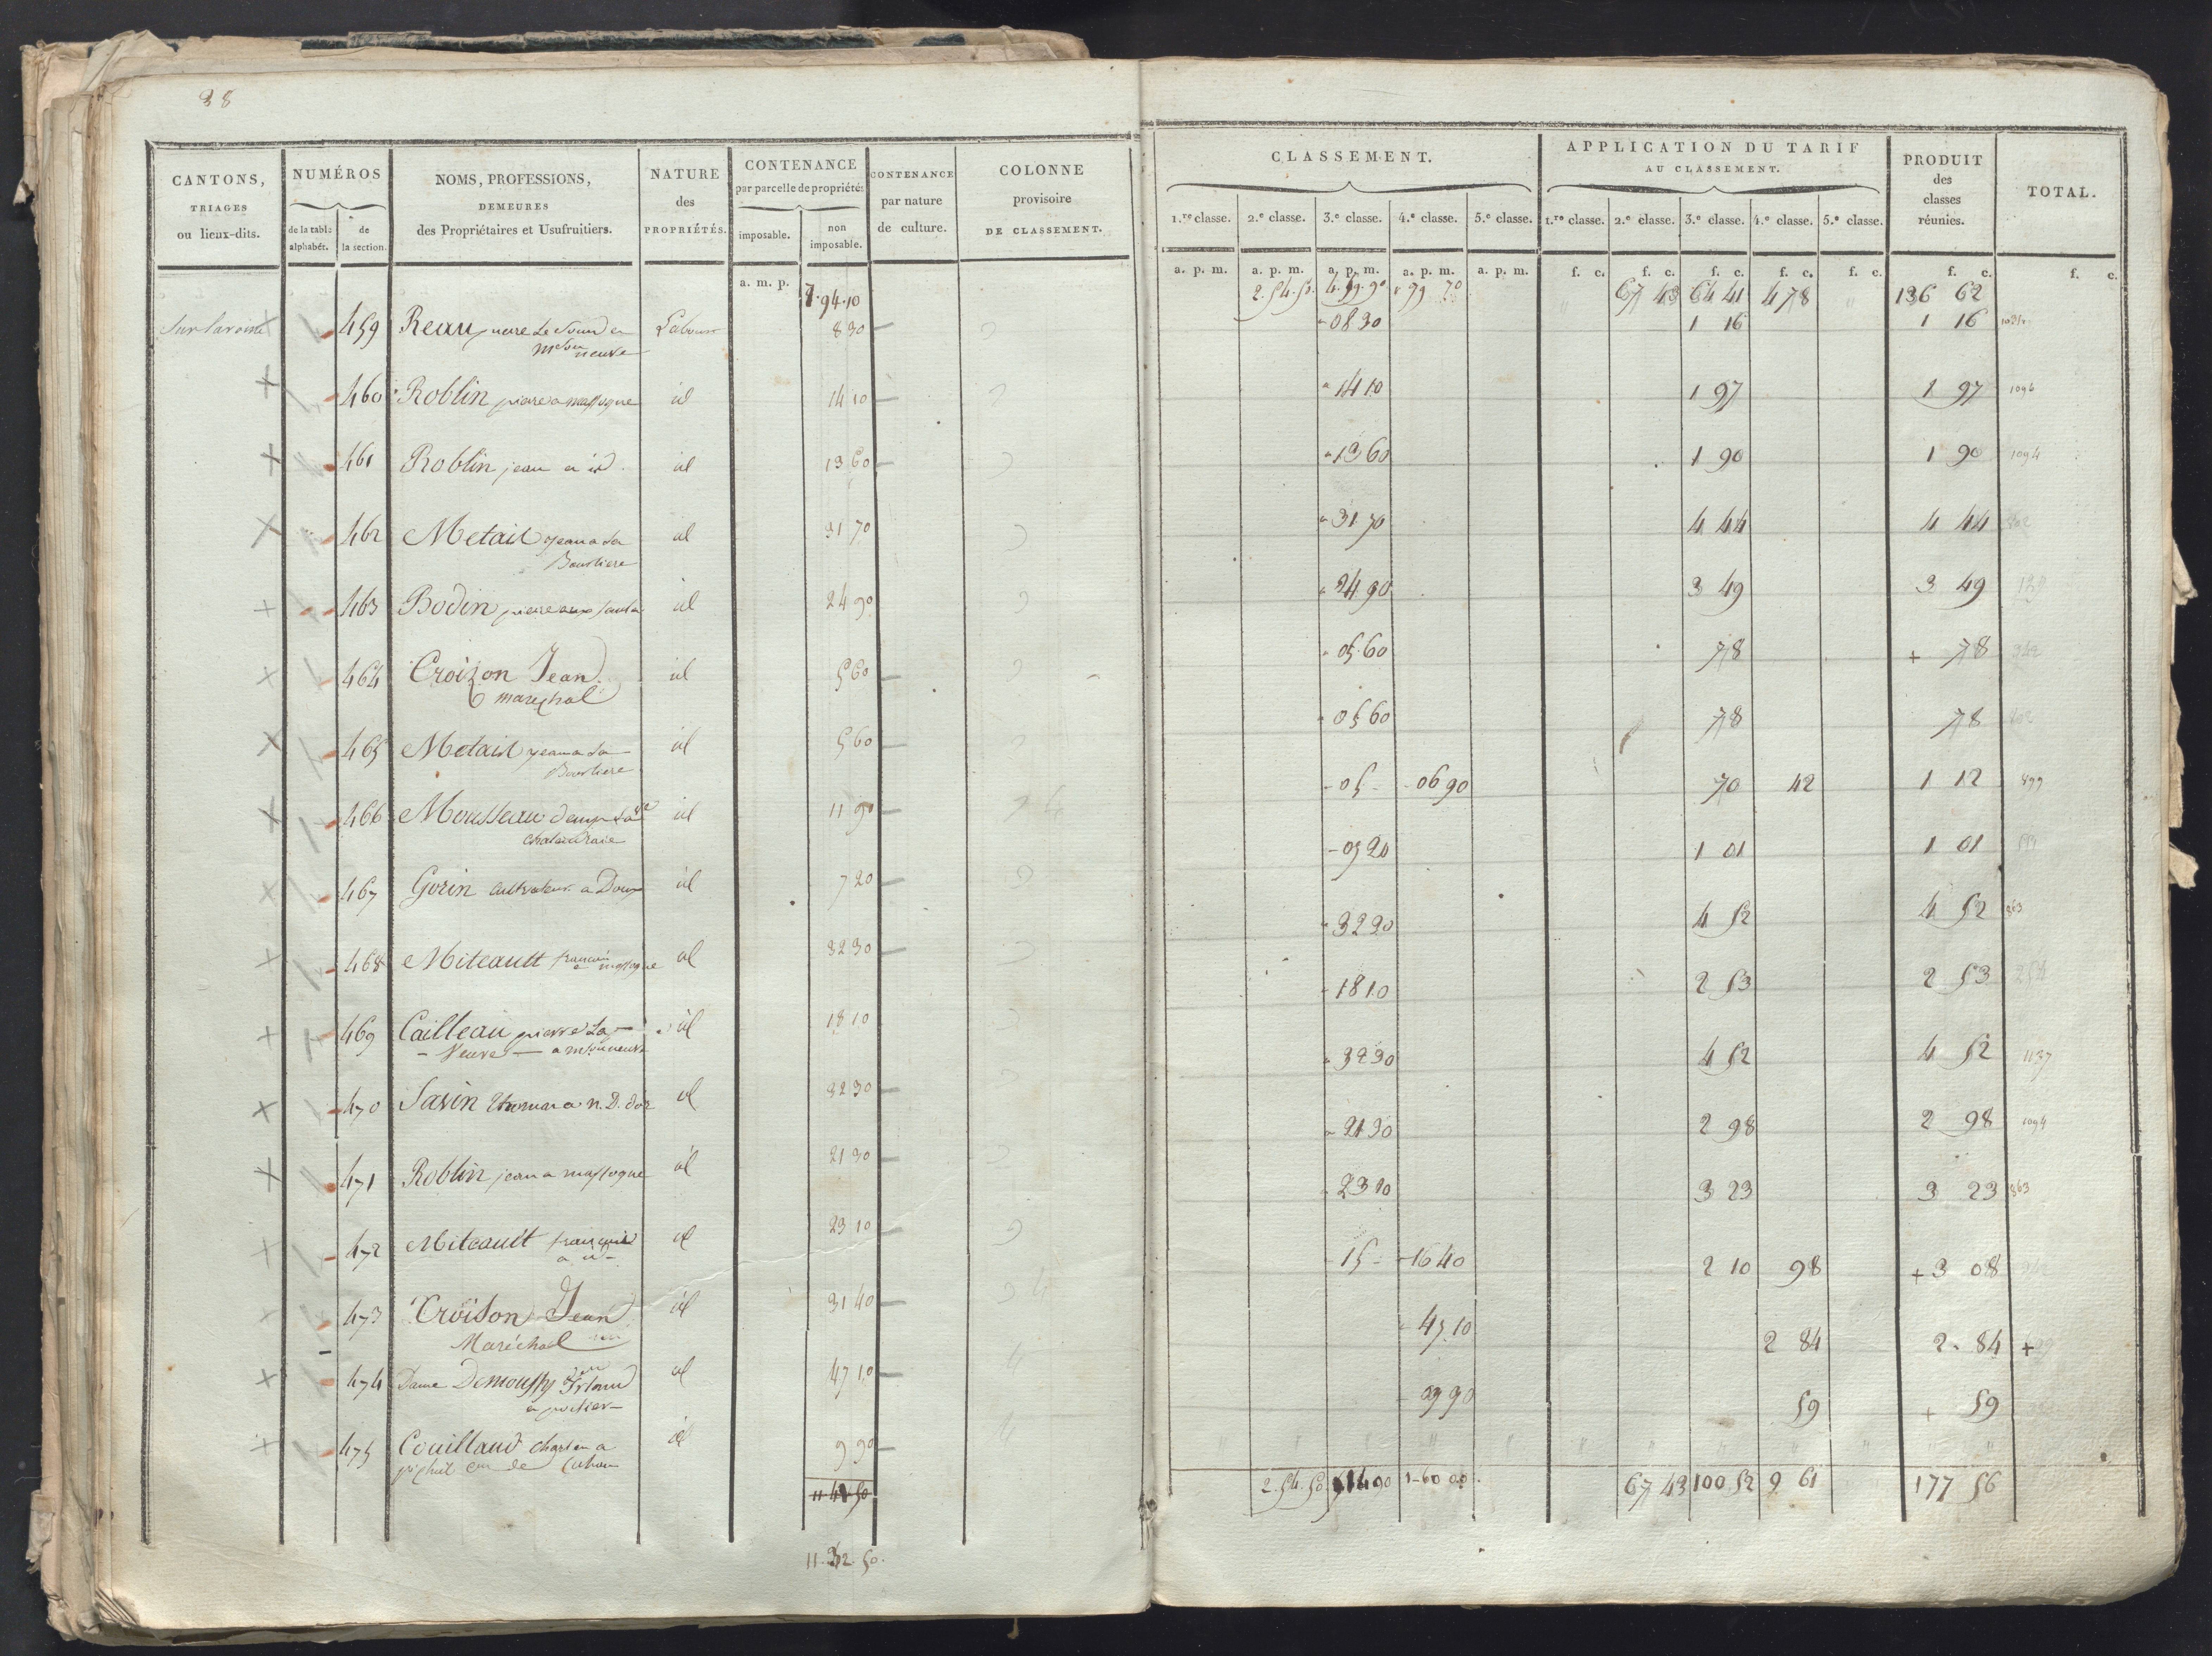 38
CANTONS,
TRIAGES
ou lieux-dits.
NUMÉROS
de la tabl: alphabét.
de la section.
NOMS, PROFESSIONS,
DEMEURES
des Propriétaires et Usufruitiers.
NATURE
des
PROPRIÉTÉS.
CONTENANCE
par parcelle de propriétés
imposable.
non imposable.
CONTENANCE
par nature
de culture.
COLONNE
provisoire
DE CLASSEMENT.
CLASSEMENT.
1.re classe. 2.e classe. 3.e classe. 4.e classe. 5.e classe.
APPLICATION DU TARIF
AU CLASSEMENT.
1.re classe. 2.e classe. 3.e classe. 4.e classe. 5.e classe.
PRODUIT
des
classes
réunies.
TOTAL.
a. m. p.
a. p. m. a. p. m. a. p. m. a. p. m. a. p. m. f. c. f. c. f. c. f. c. f. c. f. c. f. c.
7.94.10 2.54.50 4.59.90 79 70 67 43 64 41 4 78 136 62
459 Reau Labour 8 30 - 08 30 1 16 1 16
neuve
460 Roblin pierre a massogne id 14 10 " 14 10 1 97 1 97 1096
461 Roblin jean a id. id 13 60 " 13 60 1 90 1 90 1094
462 Metail jean a la id 31 70 " 31 70 4 44 4 44
463 Bodin pierre id 24 90 " 24 90 3 49 3 49
464 Croizon Jean id 5 60 " 05 60 78 + 78
marechal
465 Metail jean a la id 5 60 " 05 60 78 78
466 Mousseau id 11 90 - 05 - - 06 90 70 42 1 12 899
chataudraie
467 Gorin cultivateur a Doux id 7 20 - 07 20 1 01 1 01
468 Miteault françois a massogne id 32 30 " 32 30 4 52 4 52 863
469 Cailleau pierre la id 18 10 - 18 10 2 53 2 53
- Veuve -
470 Savin a N. D. d'or id 32 30 " 32 30 4 52 4 52 1137
471 Roblin jean a massogne id 21 30 " 21 30 2 98 2 98 1094
472 Miteault françois id 23 10 23 10 3 23 3 23 863
a id -
473 Croison Jean id 31 40 15 - - 16 40 2 10 98 + 3 08
Maréchal
474 Dame Demoussy id 47 10 47 10 2 84 2. 84 +
a poitiers
475 Couillaud charles a id 9 90 09 90 59 + 59
de
11 41 50 2.54.50 1-60 00 67 43 100 52 9 61 177 56
11.32.50.